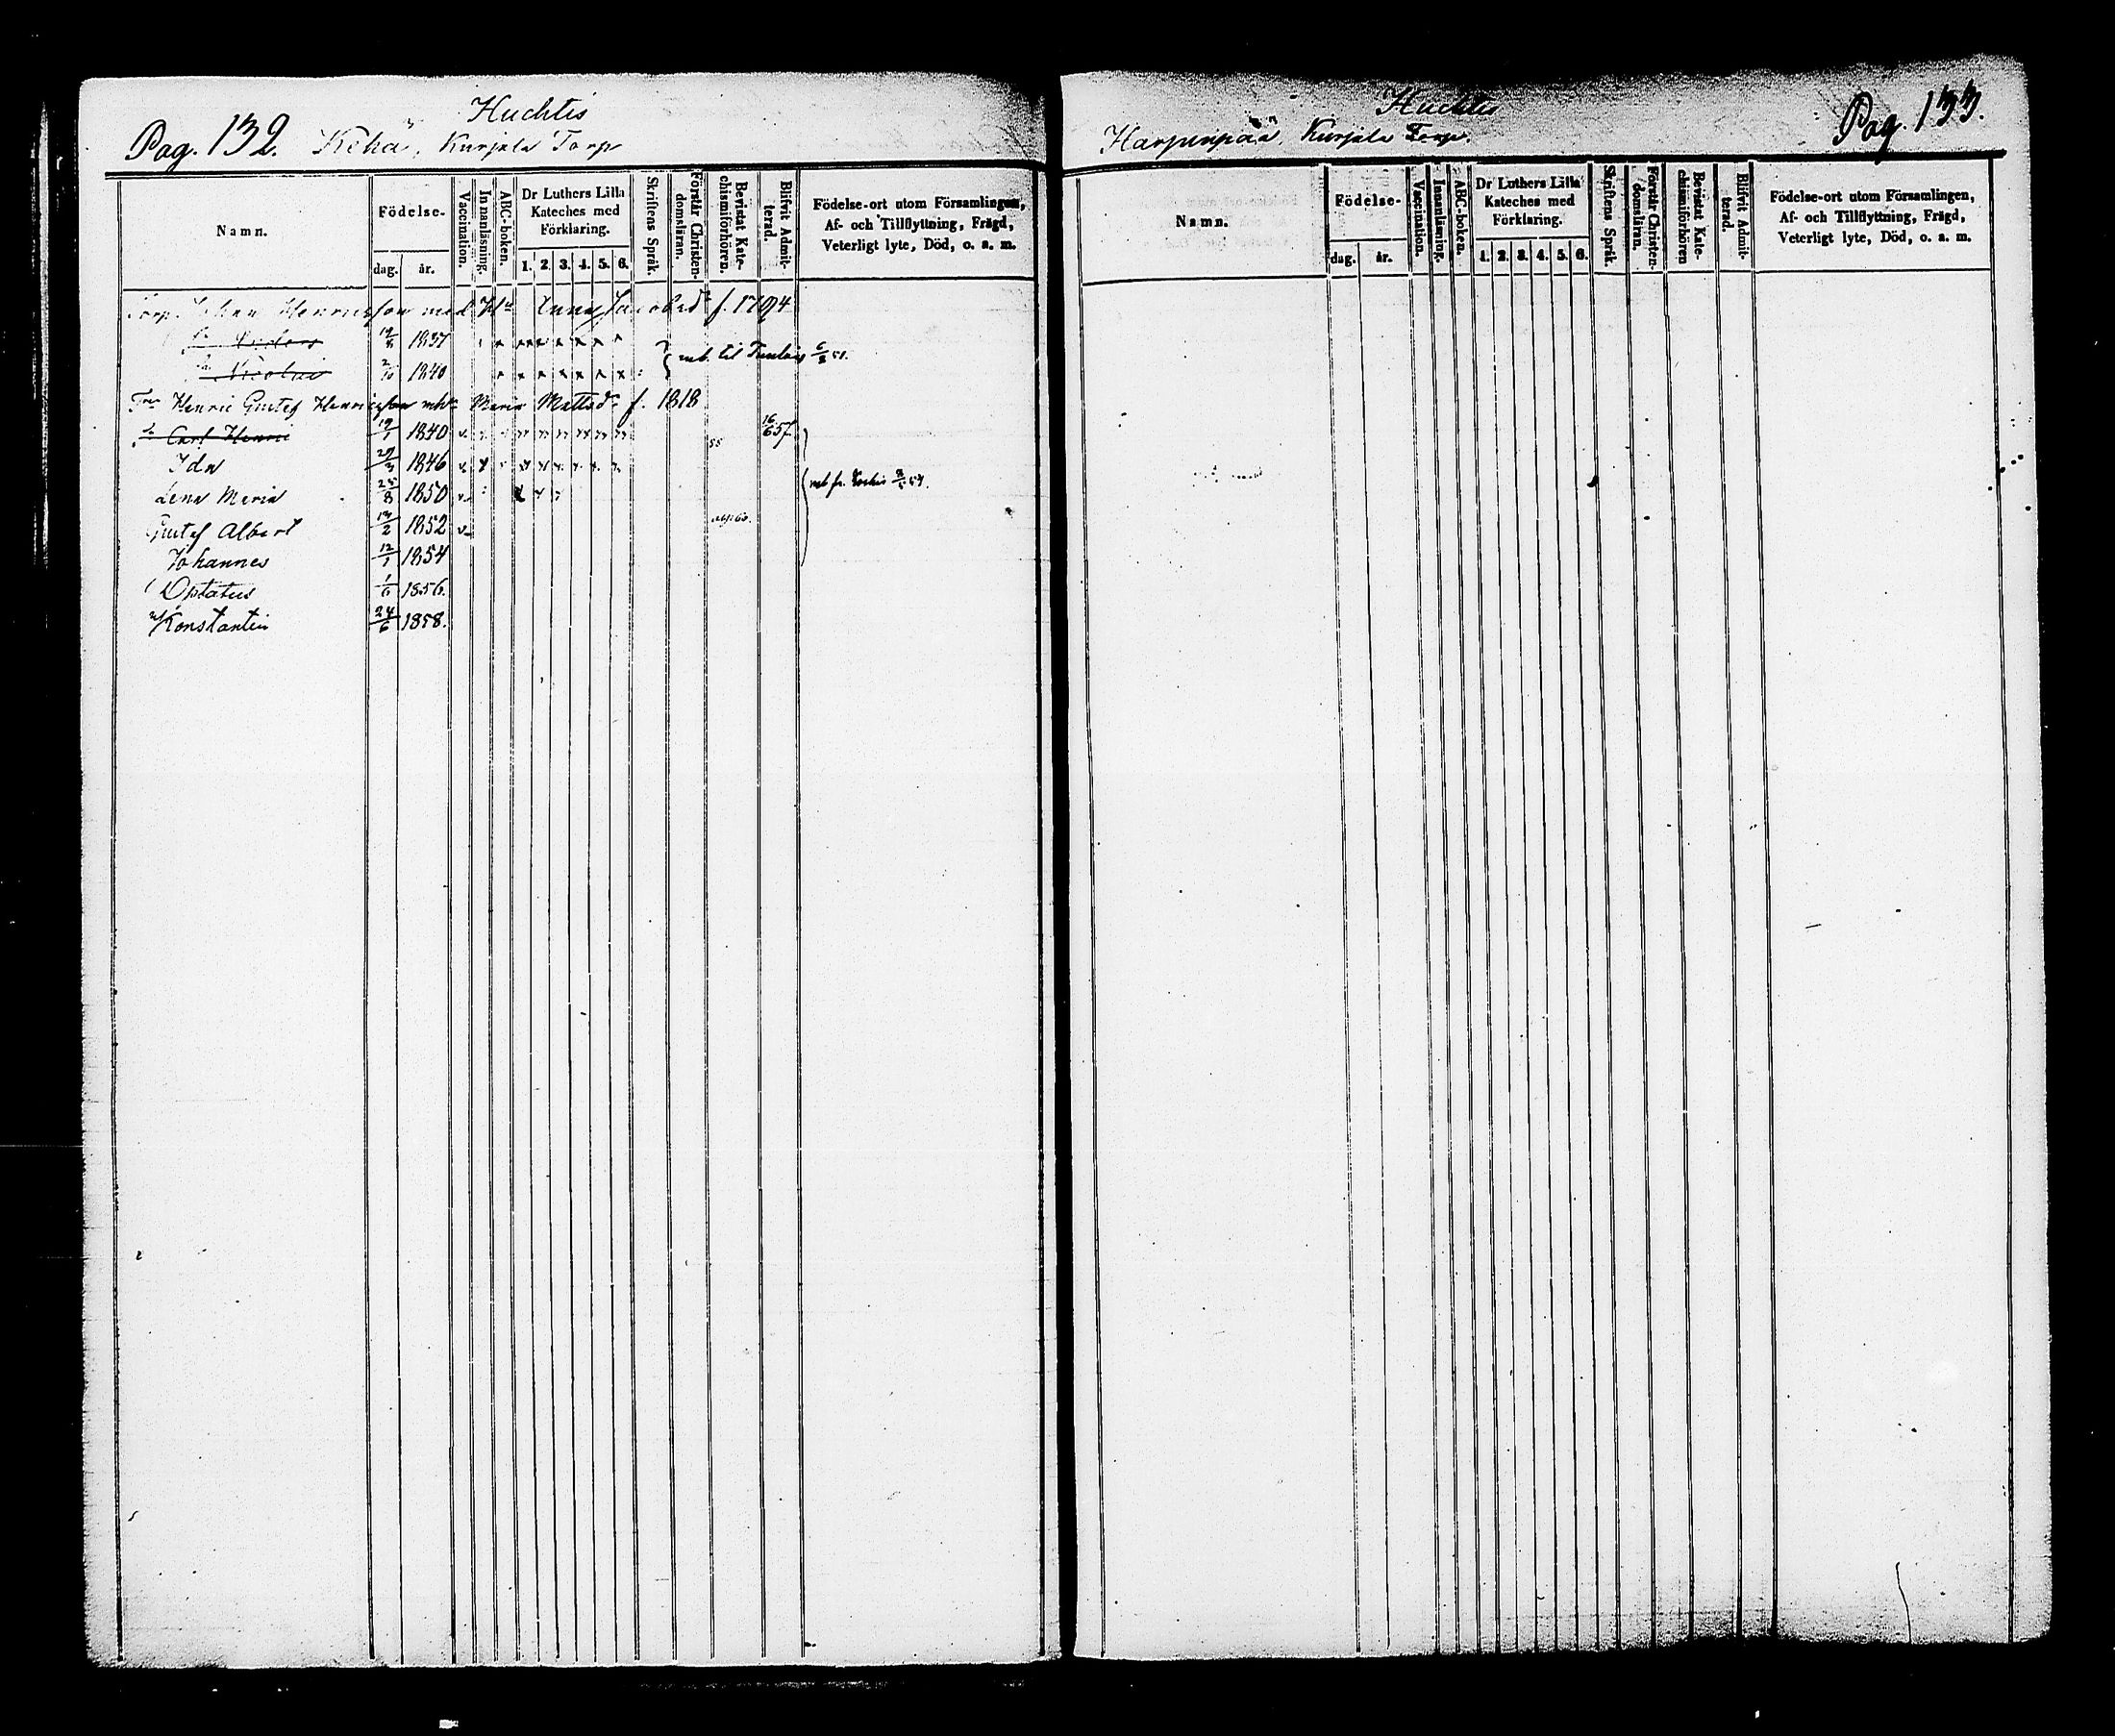 Huchtis
Pag. 132. Kehä, Kurjala Torp
Namn.
Födelse-
dag. år.
Vaccination.
Innanläsning.
ABC-boken.
Dr Luthers Lilla
Kateches med
Förklaring.
1. 2. 3. 4. 5. 6.
Skriftens Språk.
Förstår Christen-
domsläran.
Bevistat Kate-
chismiförhören.
Blifvit Admit-
terad.
Födelse-ort utom Församlingen,
Af- och Tillflyttning, Frägd,
Veterligt lyte, Död, o. a. m.
Torp. Johan Henricsson med H:u Anna Jacobsd:r f. 1794
1837
Nicolai 2/10 1840
Henric Gustaf Henricsson Maria Mattsd:r f. 1818
s. Carl Henric 19/1 1840 55 16/6 57
Ida 27/3 1846
Lena Maria 25/8 1850
Gustaf Albert 13/2 1852
Johannes 12/1 1854
Optatus 1/6 1856.
Konstantin 24/6 1858.
Huchtis
Harjunpää, Kurjala Torp. Pag. 133.
Namn.
Födelse-
dag. år.
Vaccination.
Innanläsning.
ABC-boken.
Dr Luthers Lilla
Kateches med
Förklaring.
1. 2. 3. 4. 5. 6.
Skriftens Språk.
Förstår Christen-
domsläran.
Bevistat Kate-
chismiförhören
Blifvit Admit-
terad.
Födelse-ort utom Församlingen,
Af- och Tillflyttning, Frägd,
Veterligt lyte, Död, o. a. m.